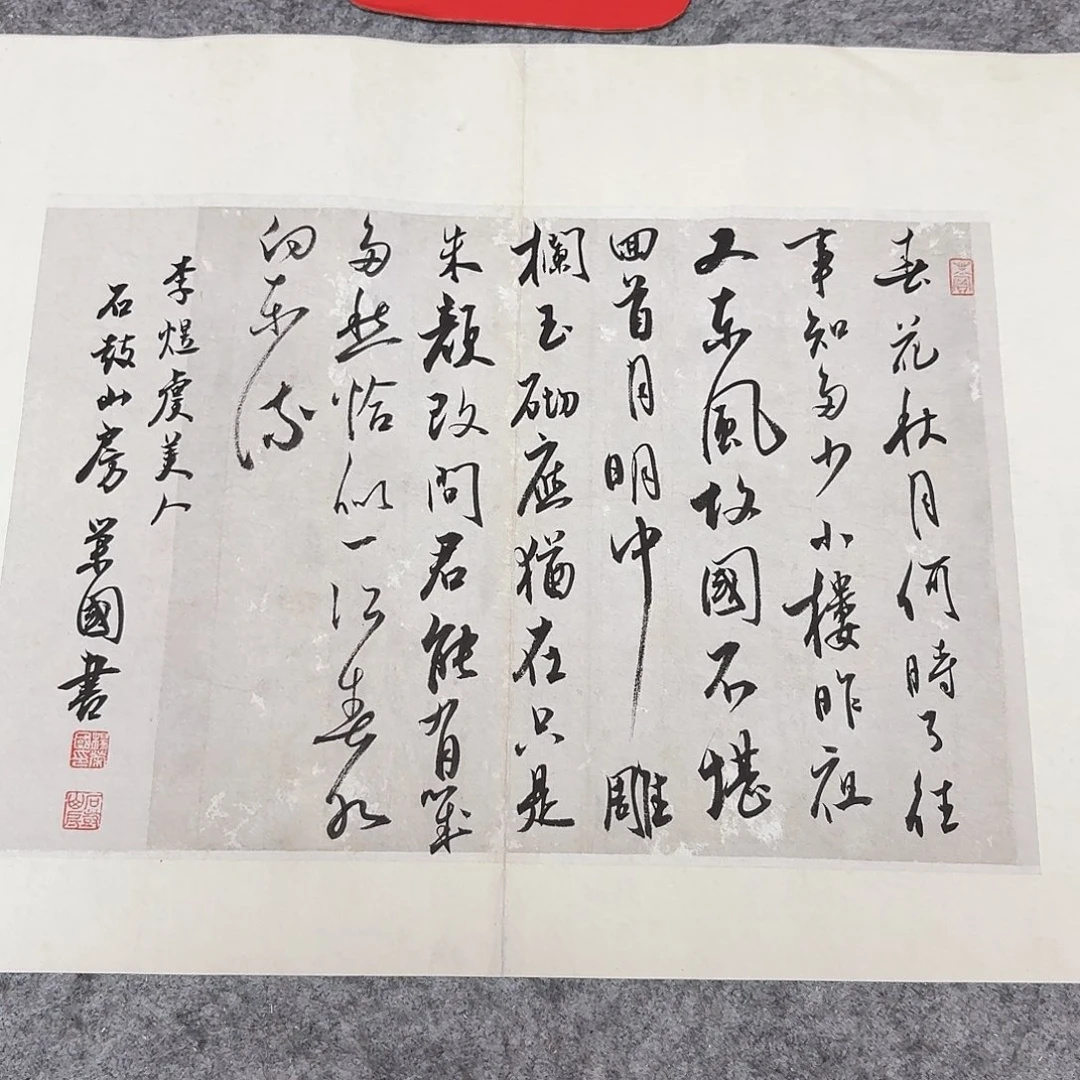 春花秋月何時了往
事知多少小樓昨夜
又東風故國不堪
囬首月明中雕
欄玉砌應猶在只是
朱顏改問君能有幾
多愁恰似一江春水
向東流
李煜虞美人
石鼓山房榮國書
楊榮國印
石鼓山房